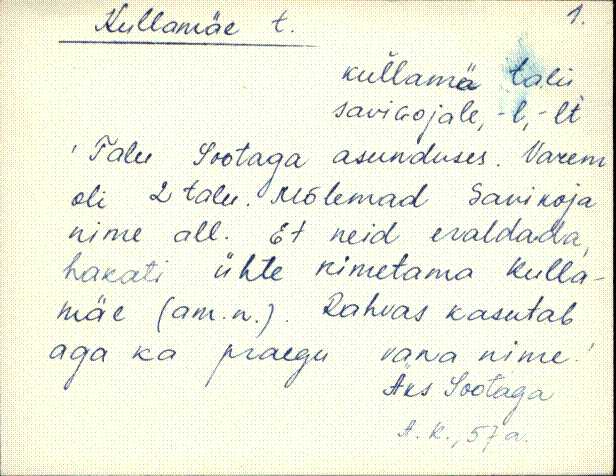 Kullamäe t.
1.
kullamä talu
savikojale, -l, -lt
' Talu Sootaga asunduses. Varem
oli 2 talu. Mõlemad Savikoja
nime all. Et neid eraldada,
hakati ühte nimetama Kulla-
mäe (am.n.). Rahvas kasutab
aga ka praegu vana nime.'
Äks Sootaga
A.K., 57 a.